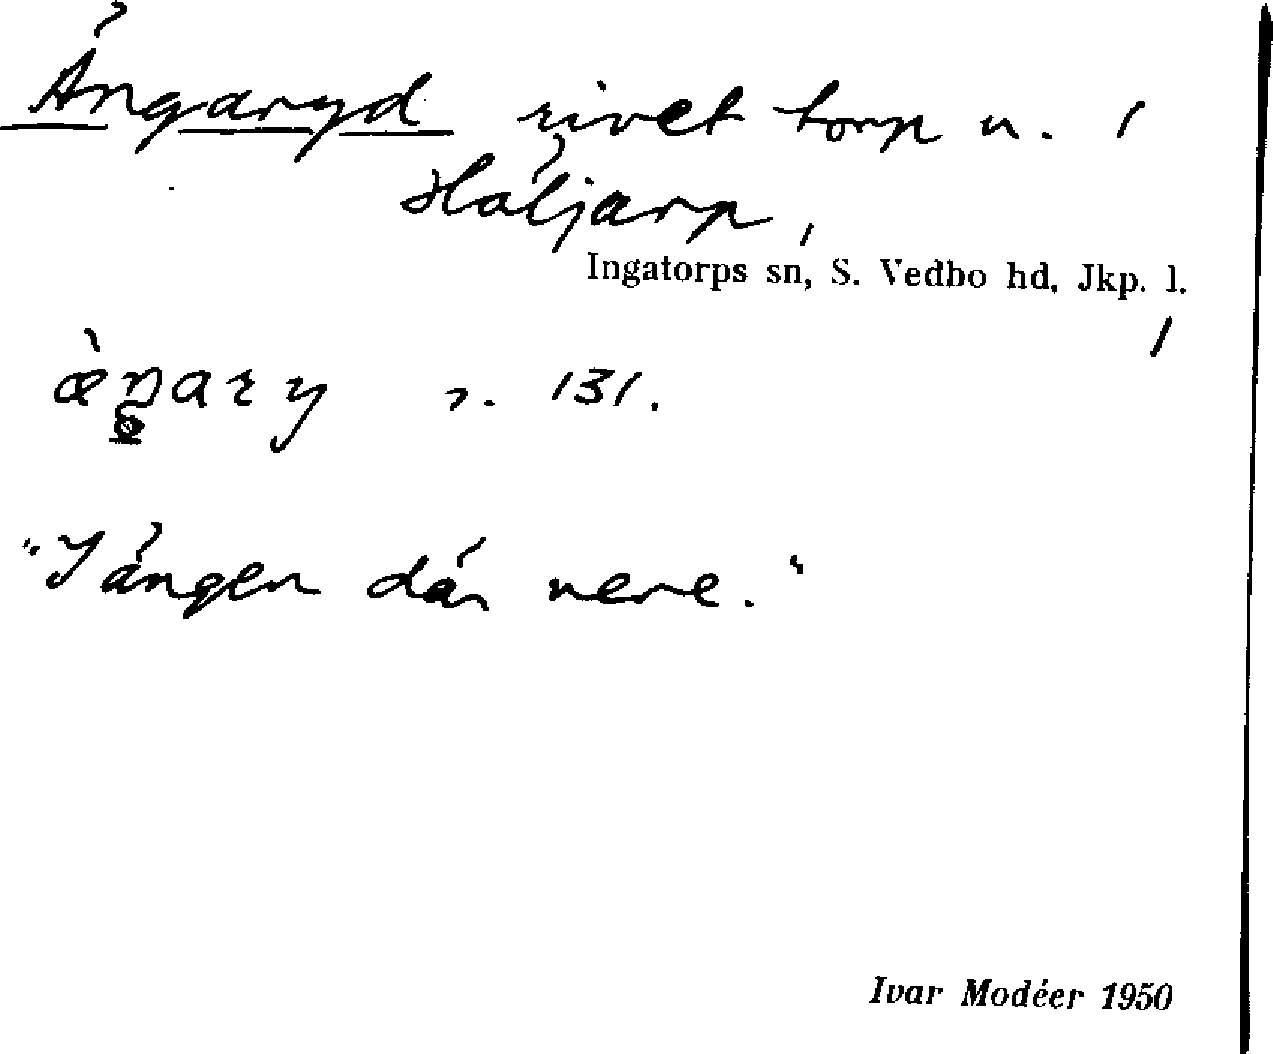 Ängaryd rivet torp u. /
Häljarp,
Ingatorps sn, S. Vedbo hd, Jkp. l.
/
æ̀ŋary r. 131.
"I ängen där nere."
Ivar Modéer 1950